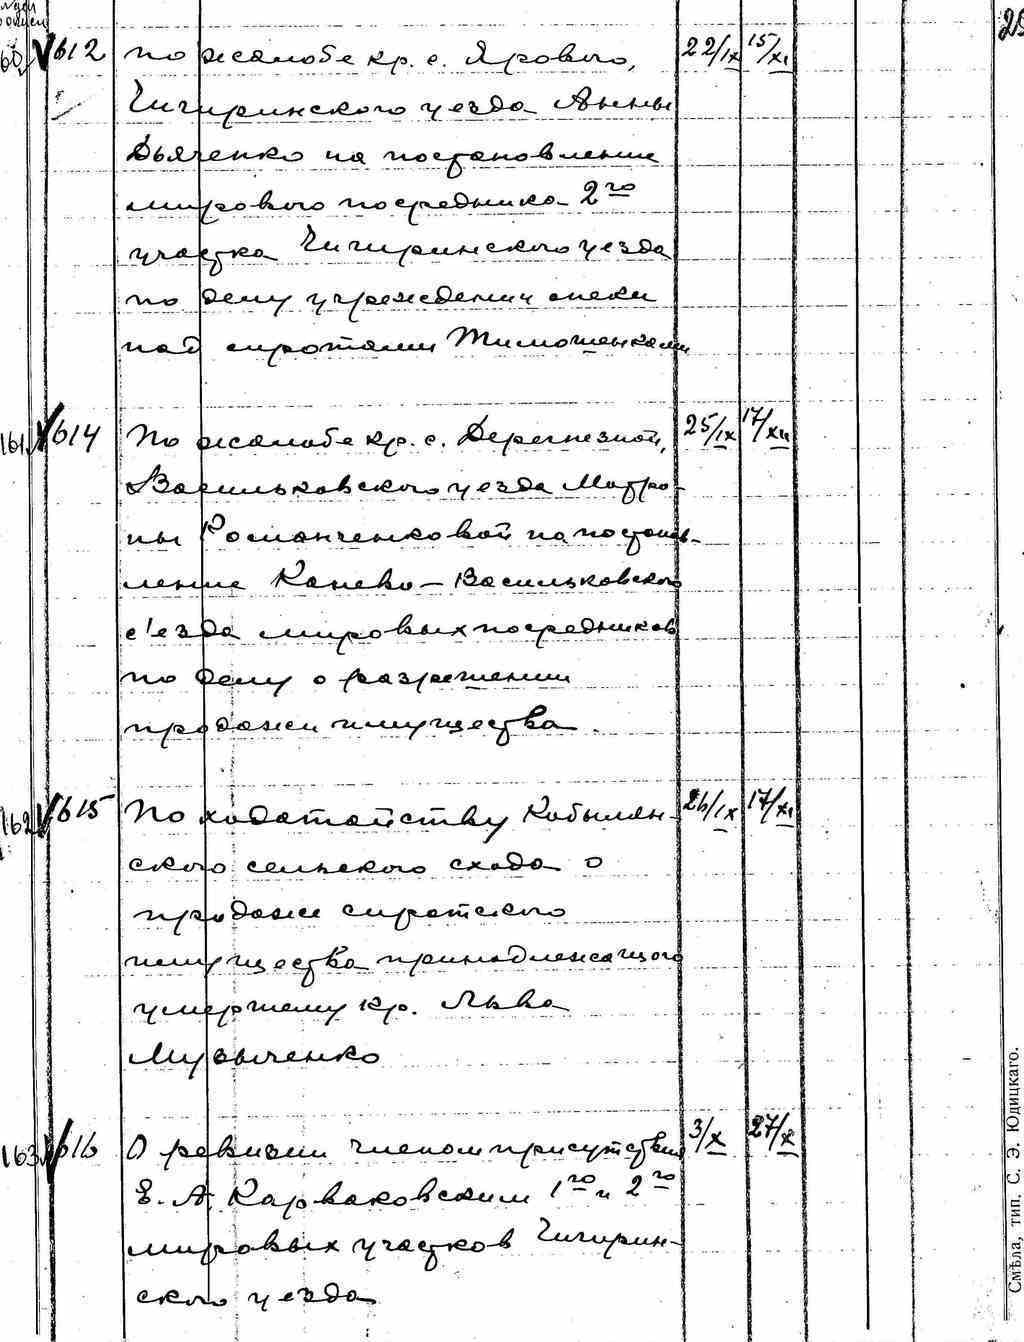 612 по жалобе кр. с. Ярового, 22/IX 15/XI
Чигиринского уезда Анны
Дьяченко на постановление
мирового посредника 2го
участка Чигиринского уезда
по делу учреждении опеки
над сиротами Тимошенками
161 614 По жалобе кр. с. 25/IX 17/XII
Васильковского уезда Матро-
ны Романченковой на постанов-
ление Канево-Васильковского
с'езда мировых посредников
по делу о разрешении
продажи имущества
162 615 По ходатайству Кобылян- 26/IX 17/XI
ского сельского схода о
продаже сиротского
имущества принадлежащого
умершему кр. Льва
Музыченко
163 616 О ревизии членом присутствия 3/X 27/X
Е. А. Карваковским 1го и 2го
мировых участков Чигирин-
ского уезда
Смѣла, тип. С. Э. Юдицкаго.